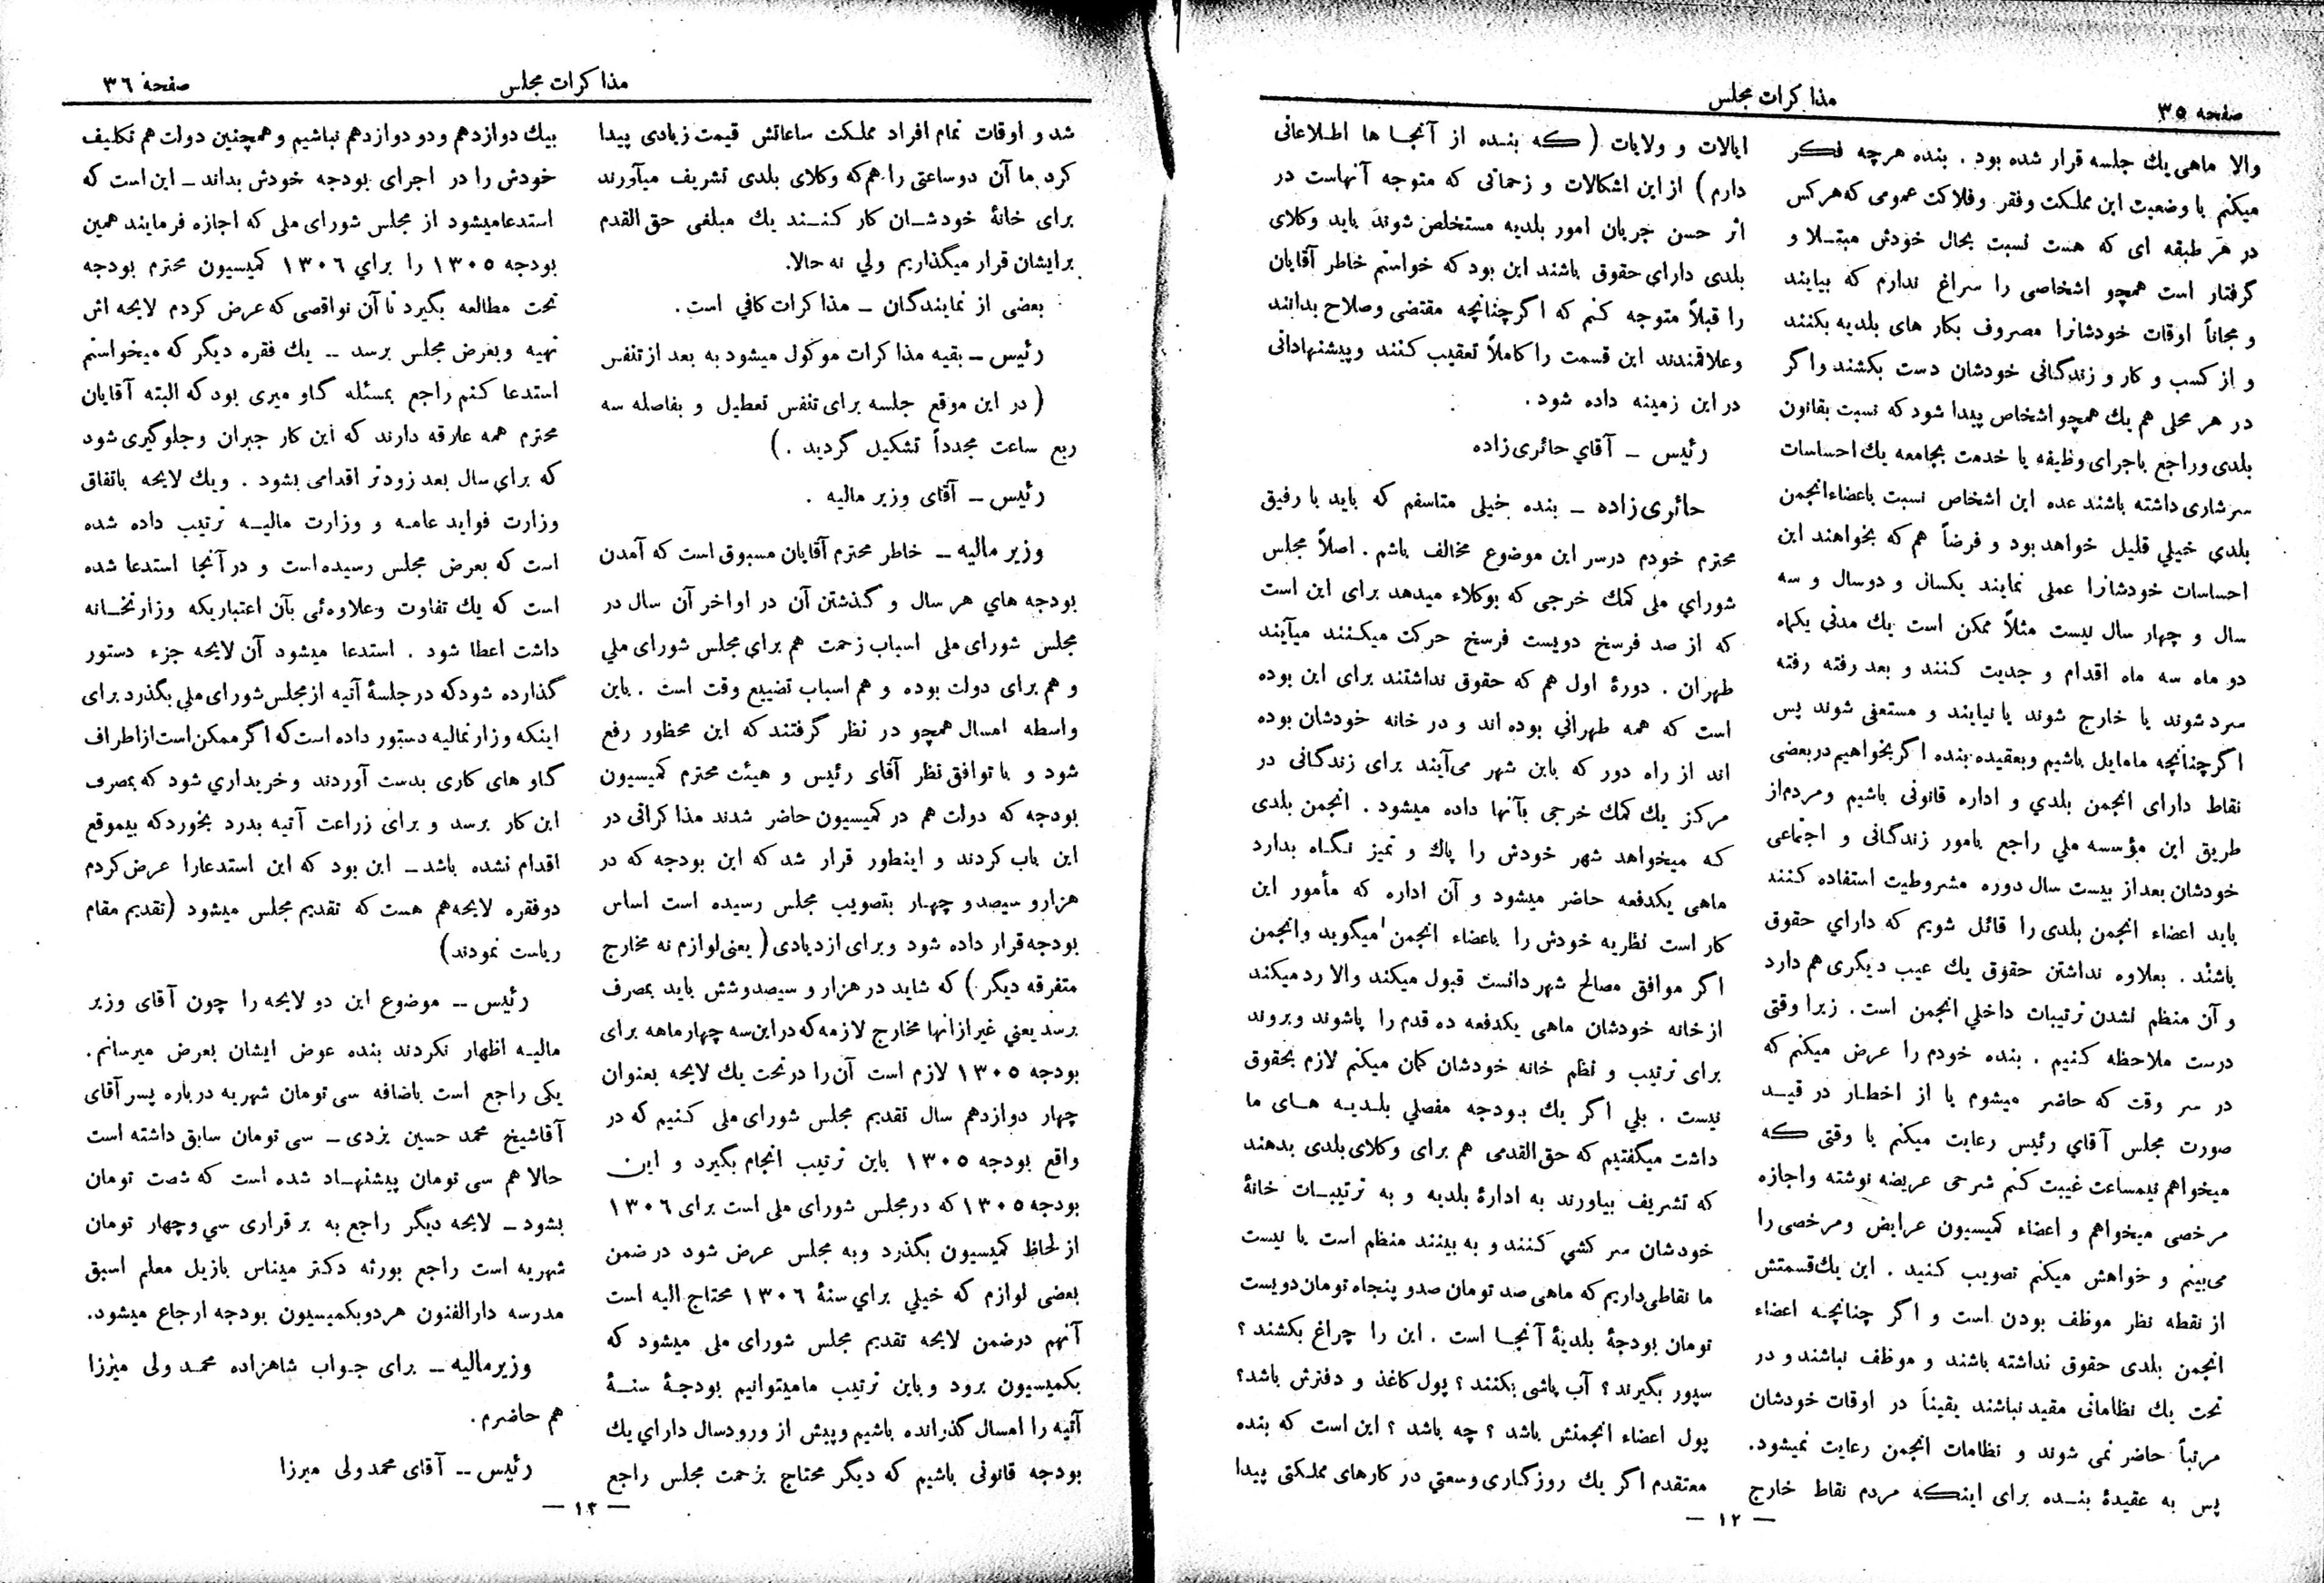 صفحه ۳۵
مذاکرات مجلس
والا ماهی یك جلسه قرار شده بود . بنده هرچه فکر
میکنم با وضعیت این مملکت وفقر وفلاکت عمومی که هرکس
در هر طبقه ای که هست نسبت بحال خودش مبتلا و
گرفتار است همچو اشخاصی را سراغ ندارم که بیایند
و مجاناً اوقات خودشانرا مصروف بکار های بلدیه بکنند
و از کسب و کار و زندگانی خودشان دست بکشند واگر
در هر محلی هم یك همچو اشخاص پیدا شود که نسبت بقانون
بلدی وراجع باجرای وظیفه یا خدمت بجامعه یك احساسات
سرشاری داشته باشند عده این اشخاص نسبت باعضاء انجمن
بلدی خیلی قلیل خواهد بود و فرضاً هم که بخواهند این
احساسات خودشانرا عملی نمایند یکسال و دوسال و سه
سال و چهار سال نیست مثلاً ممکن است یك مدتی یکماه
دو ماه سه ماه اقدام و جدیت کنند و بعد رفته رفته
سرد شوند یا خارج شوند یا نیایند و مستعفی شوند پس
اگر چنانچه مامایل باشیم وبعقیده بنده اگر بخواهیم دربعضی
نقاط دارای انجمن بلدی و اداره قانونی باشیم ومردم از
طریق این مؤسسه ملی راجع بامور زندگانی و اجتماعی
خودشان بعد از بیست سال دوره مشروطیت استفاده کنند
باید اعضاء انجمن بلدی را قائل شویم که دارای حقوق
باشند . بعلاوه نداشتن حقوق یك عیب دیگری هم دارد
و آن منظم نشدن ترتیبات داخلی انجمن است . زیرا وقتی
درست ملاحظه کنیم . بنده خودم را عرض میکنم که
در سر وقت که حاضر میشوم یا از اخطار در قید
صورت مجلس آقای رئیس رعایت میکنم یا وقتی که
میخواهم نیمساعت غیبت کنم شرحی عریضه نوشته واجازه
مرخصی میخواهم و اعضاء کمیسیون عرایض ومرخصی را
می‌بینم و خواهش میکنم تصویب کنید . این یك قسمتش
از نقطه نظر موظف بودن است و اگر چنانچه اعضاء
انجمن بلدی حقوق نداشته باشند و موظف نباشند و در
تحت یك نظاماتی مقید نباشند یقیناً در اوقات خودشان
مرتباً حاضر نمی شوند و نظامات انجمن رعایت نمیشود.
پس به عقیدهٔ بنده برای اینکه مردم نقاط خارج
ایالات و ولایات ( که بنده از آنجا ها اطلاعاتی
دارم ) از این اشکالات و زحماتی که متوجه آنهاست در
اثر حسن جریان امور بلدیه مستخلص شوند باید وکلای
بلدی دارای حقوق باشند این بود که خواستم خاطر آقایان
را قبلاً متوجه کنم که اگر چنانچه مقتضی وصلاح بدانند
وعلاقمندند این قسمت را کاملاً تعقیب کنند وپیشنهاداتی
در این زمینه داده شود .
رئیس ـ آقای حائری زاده
حائری زاده ـ بنده خیلی متاسفم که باید با رفیق
محترم خودم درسر این موضوع مخالف باشم . اصلاً مجلس
شورای ملی کمك خرجی که بوکلاء میدهد برای این است
که از صد فرسخ دویست فرسخ حرکت میکنند میآیند
طهران . دورهٔ اول هم که حقوق نداشتند برای این بوده
است که همه طهرانی بوده اند و در خانه خودشان بوده
اند از راه دور که باین شهر می‌آیند برای زندگانی در
مرکز یك کمك خرجی بآنها داده میشود . انجمن بلدی
که میخواهد شهر خودش را پاك و تمیز نگاه بدارد
ماهی یکدفعه حاضر میشود و آن اداره که مأمور این
کار است نظریه خودش را باعضاء انجمن میگوید وانجمن
اگر موافق مصالح شهر دانست قبول میکند والا رد میکند
از خانه خودشان ماهی یکدفعه ده قدم را پاشوند وبروند
برای ترتیب و نظم خانه خودشان گمان میکنم لازم بحقوق
نیست . بلی اگر یك بودجه مفصلی بلدیه های ما
داشت میگفتیم که حق القدمی هم برای وکلای بلدی بدهند
که تشریف بیاورند به ادارهٔ بلدیه و به ترتیبات خانهٔ
خودشان سر کشی کنند و به بینند منظم است یا نیست
ما نقاطی داریم که ماهی صد تومان صدو پنجاه تومان دویست
تومان بودجهٔ بلدیهٔ آنجا است . این را چراغ بکشند ؟
سپور بگیرند ؟ آب پاشی بکنند ؟ پول کاغذ و دفترش باشد؟
پول اعضاء انجمنش باشد ؟ چه باشد ؟ این است که بنده
معتقدم اگر یك روزگاری وسعتی در کارهای مملکتی پیدا
ـ ۱۲ ـ
مذاکرات مجلس
صفحهٔ ۳۶
شد و اوقات تمام افراد مملکت ساعاتش قیمت زیادی پیدا
کرد ما آن دوساعتی را هم که وکلای بلدی تشریف میآورند
برای خانهٔ خودشان کار کنند یك مبلغی حق القدم
برایشان قرار میگذاریم ولی نه حالا.
بعضی از نمایندگان ـ مذاکرات کافی است .
رئیس ـ بقیه مذاکرات موکول میشود به بعد از تنفس
( در این موقع جلسه برای تنفس تعطیل و بفاصله سه
ربع ساعت مجدداً تشکیل گردید . )
رئیس ـ آقای وزیر مالیه .
وزیر مالیه ـ خاطر محترم آقایان مسبوق است که آمدن
بودجه های هر سال و گذشتن آن در اواخر آن سال در
مجلس شورای ملی اسباب زحمت هم برای مجلس شورای ملی
و هم برای دولت بوده و هم اسباب تضییع وقت است . باین
واسطه امسال همچو در نظر گرفتند که این محظور رفع
شود و با توافق نظر آقای رئیس و هیئت محترم کمیسیون
بودجه که دولت هم در کمیسیون حاضر شدند مذاکراتی در
این باب کردند و اینطور قرار شد که این بودجه که در
هزارو سیصدو چهار بتصویب مجلس رسیده است اساس
بودجه قرار داده شود وبرای ازدیادی ( یعنی لوازم نه مخارج
متفرقه دیگر ) که شاید در هزار و سیصدوشش باید بمصرف
برسد یعنی غیر از انها مخارج لازمه که در این سه چهارماهه برای
بودجه ۱۳۰۵ لازم است آن را در تحت یك لایحه بعنوان
چهار دوازدهم سال تقدیم مجلس شورای ملی کنیم که در
واقع بودجه ۱۳۰۵ باین ترتیب انجام بگیرد و این
بودجه ۱۳۰۵ که درمجلس شورای ملی است برای ۱۳۰۶
از لحاظ کمیسیون بگذرد وبه مجلس عرض شود در ضمن
بعضی لوازم که خیلی برای سنهٔ ۱۳۰۶ محتاج الیه است
آنهم درضمن لایحه تقدیم مجلس شورای ملی میشود که
بکمیسیون برود وباین ترتیب مامیتوانیم بودجهٔ سنهٔ
آتیه را امسال گذرانده باشیم وپیش از ورودسال دارای یك
بودجه قانونی باشیم که دیگر محتاج بزحمت مجلس راجع
بیك دوازدهم ودو دوازدهم نباشیم وهمچنین دولت هم تکلیف
خودش را در اجرای بودجه خودش بداند ـ این است که
استدعامیشود از مجلس شورای ملی که اجازه فرمایند همین
بودجه ۱۳۰۵ را برای ۱۳۰۶ کمیسیون محترم بودجه
تحت مطالعه بگیرد تا آن نواقصی که عرض کردم لایحه اش
تهیه وبعرض مجلس برسد ـ یك فقره دیگر که میخواستم
استدعا کنم راجع بمسئله گاو میری بود که البته آقایان
محترم همه علاقه دارند که این کار جبران وجلوگیری شود
که برای سال بعد زودتر اقدامی بشود . ویك لایحه باتفاق
وزارت فواید عامه و وزارت مالیه ترتیب داده شده
است که بعرض مجلس رسیده است و در آنجا استدعا شده
است که یك تفاوت وعلاوه‌ئی بآن اعتباریکه وزارتخانه
داشت اعطا شود . استدعا میشود آن لایحه جزء دستور
گذارده شود که در جلسهٔ آتیه از مجلس شورای ملی بگذرد برای
اینکه وزارتمالیه دستور داده است که اگر ممکن است از اطراف
گاو های کاری بدست آوردند وخریداری شود که بمصرف
این کار برسد و برای زراعت آتیه بدرد بخورد که بیموقع
اقدام نشده باشد ـ این بود که این استدعارا عرض کردم
دوفقره لایحه هم هست که تقدیم مجلس میشود (تقدیم مقام
ریاست نمودند)
رئیس ـ موضوع این دو لایحه را چون آقای وزیر
مالیه اظهار نکردند بنده عوض ایشان بعرض میرسانم.
یکی راجع است باضافه سی تومان شهریه درباره پسر آقای
آقاشیخ محمد حسین یزدی ـ سی تومان سابق داشته است
حالا هم سی تومان پیشنهاد شده است که شصت تومان
بشود ـ لایحه دیگر راجع به برقراری سی وچهار تومان
شهریه است راجع بورثه دکتر میناس بازیل معلم اسبق
مدرسه دارالفنون هردو بکمیسیون بودجه ارجاع میشود.
وزیر مالیه ـ برای جواب شاهزاده محمد ولی میرزا
هم حاضرم.
رئیس ـ آقای محمد ولی میرزا
ـ ۱۳ ـ